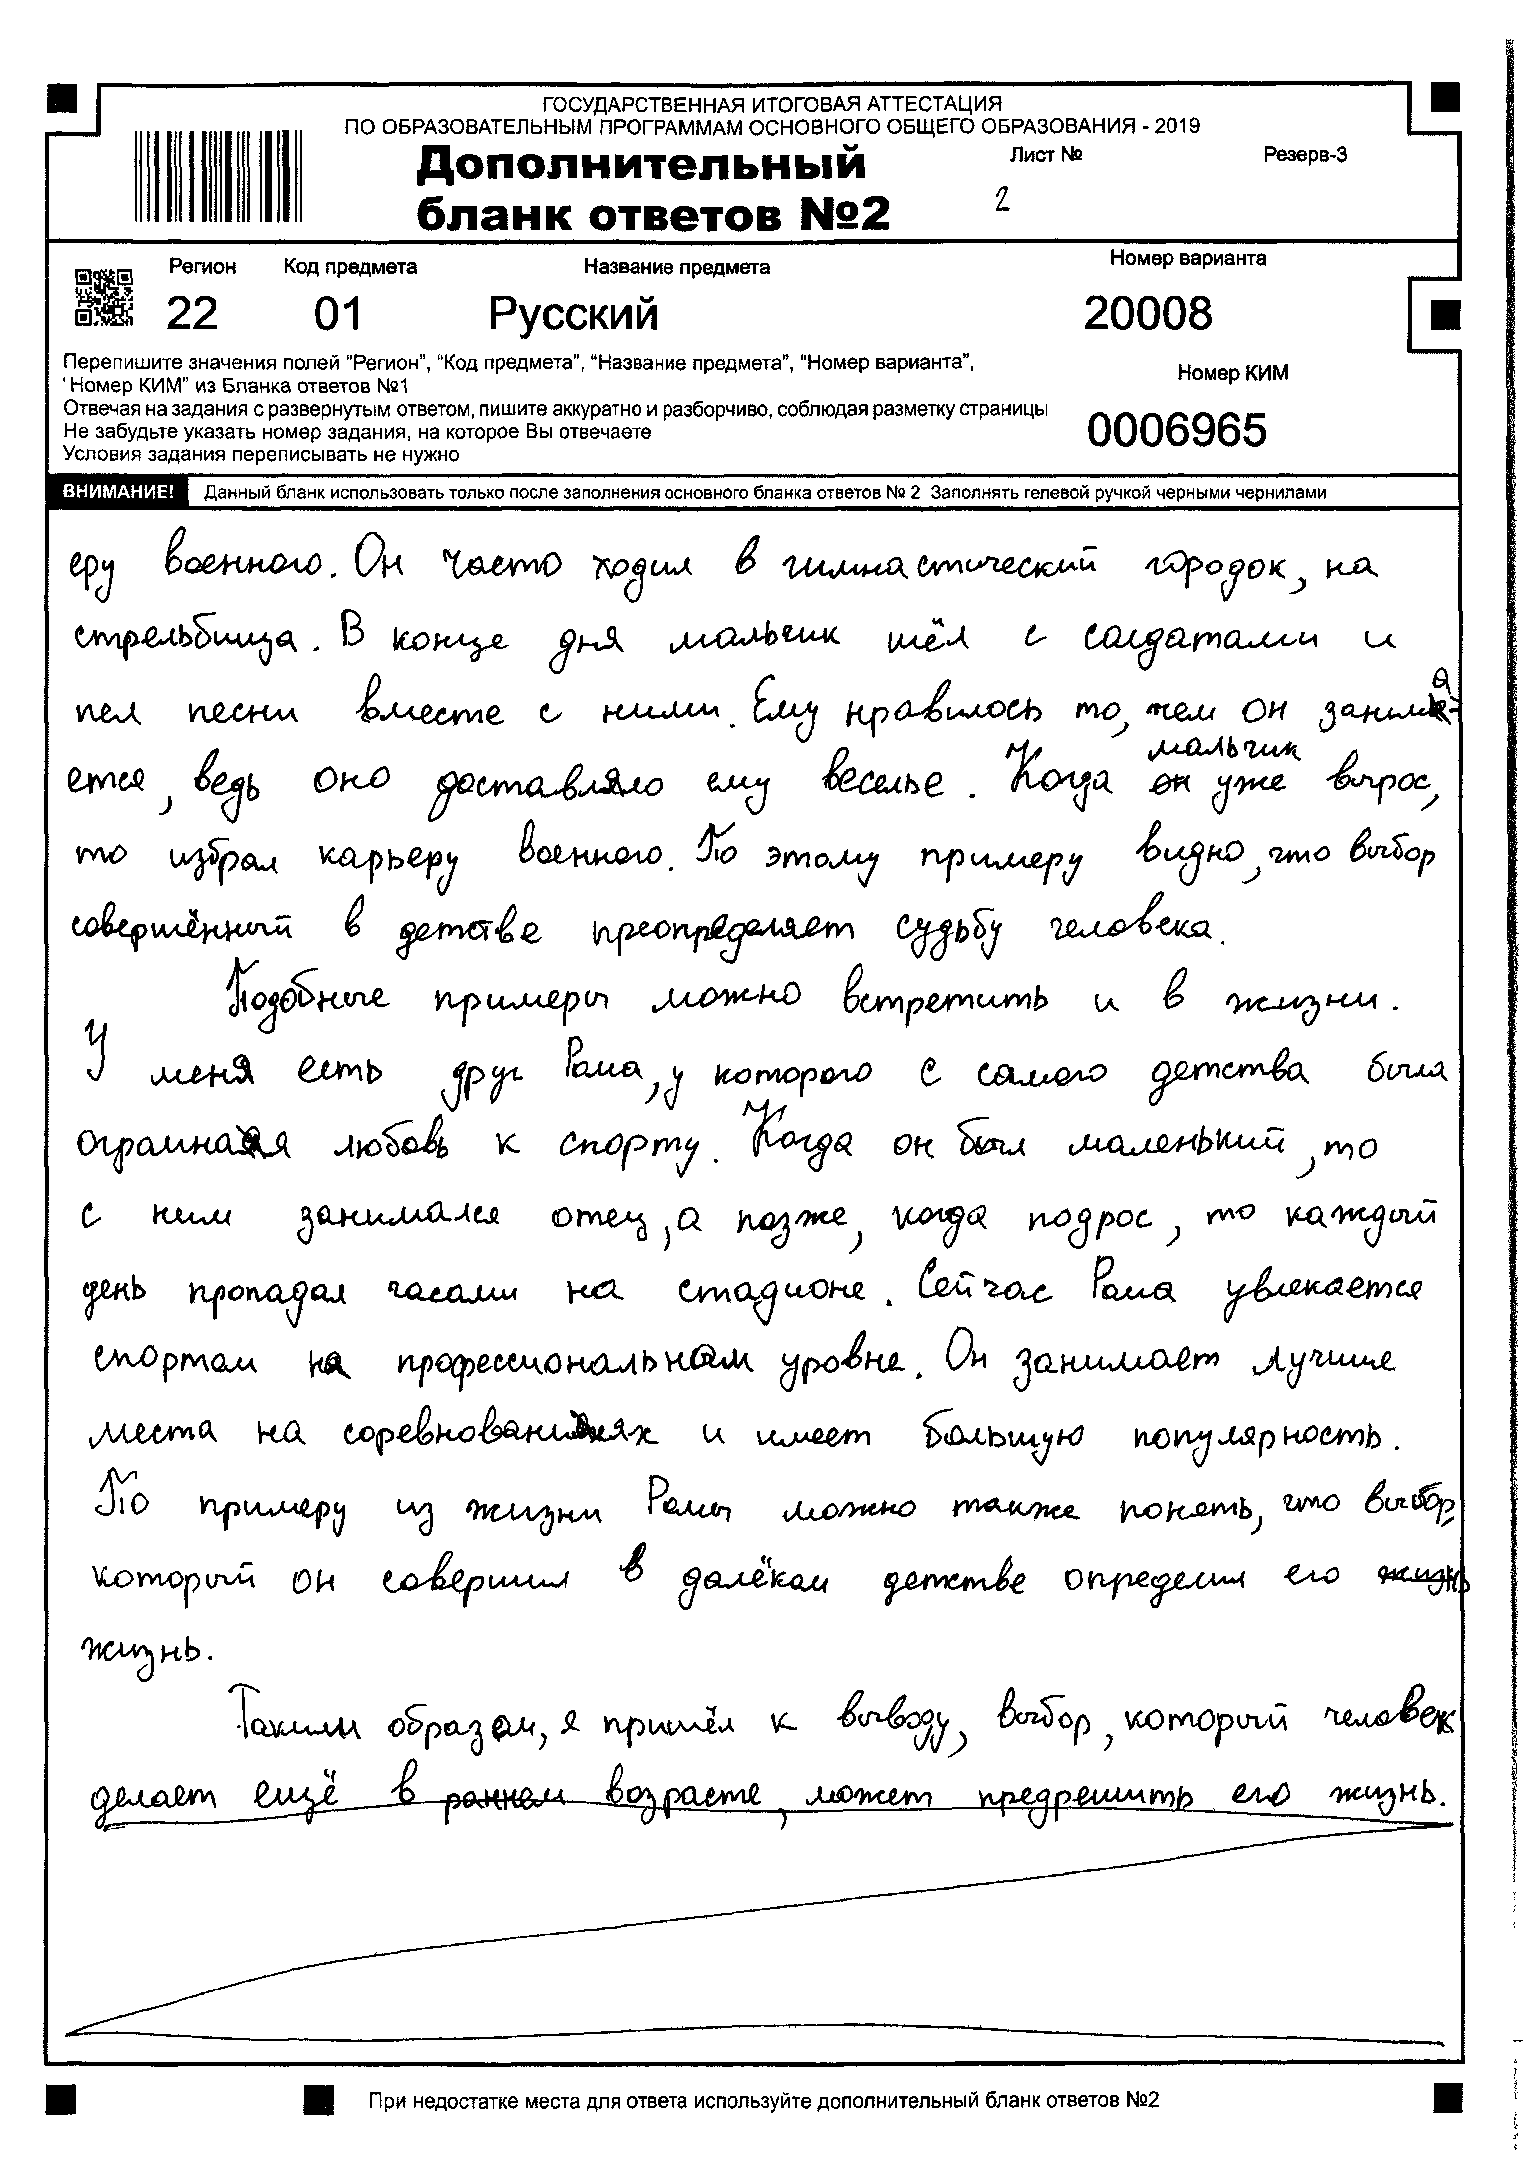 ГОСУДАРСТВЕННАЯ ИТОГОВАЯ АТТЕСТАЦИЯ
ПО ОБРАЗОВАТЕЛЬНЫМ ПРОГРАММАМ ОСНОВНОГО ОБЩЕГО ОБРАЗОВАНИЯ - 2019
Дополнительный
бланк ответов №2
Лист №
Резерв-3
2
Регион
Код предмета
Название предмета
Номер варианта
22
01
Русский
20008
Перепишите значения полей "Регион", "Код предмета", "Название предмета", "Номер варианта",
"Номер КИМ" из Бланка ответов №1
Отвечая на задания с развернутым ответом, пишите аккуратно и разборчиво, соблюдая разметку страницы
Не забудьте указать номер задания, на которое Вы отвечаете
Условия задания переписывать не нужно
Номер КИМ
0006965
ВНИМАНИЕ! Данный бланк использовать только после заполнения основного бланка ответов № 2 Заполнять гелевой ручкой черными чернилами
еру военного. Он часто ходил в гимнастический городок, на
стрельбища. В конце дня мальчик шёл с солдатами и
пел песни вместе с ними. Ему нравилось то, чем он занима-
ется, ведь оно доставляло ему веселье. Когда мальчик уже вырос,
то избрал карьеру военного. По этому примеру видно, что выбор
совершённый в детстве преопределяет судьбу человека.
Подобные примеры можно встретить и в жизни.
У меня есть друг Рома, у которого с самого детства была
огромная любовь к спорту. Когда он был маленький, то
с ним занимался отец, а позже, когда подрос, то каждый
день пропадал часами на стадионе. Сейчас Рома увлекается
спортом на профессиональном уровне. Он занимает лучшие
места на соревнованиях и имеет большую популярность.
По примеру из жизни Ромы можно также понять, что выбор,
который он совершил в далёком детстве определил его жизнь
жизнь.
Таким образом, я пришёл к выводу, выбор, который человек
делает ещё в раннем возрасте, может предрешить его жизнь.
При недостатке места для ответа используйте дополнительный бланк ответов №2